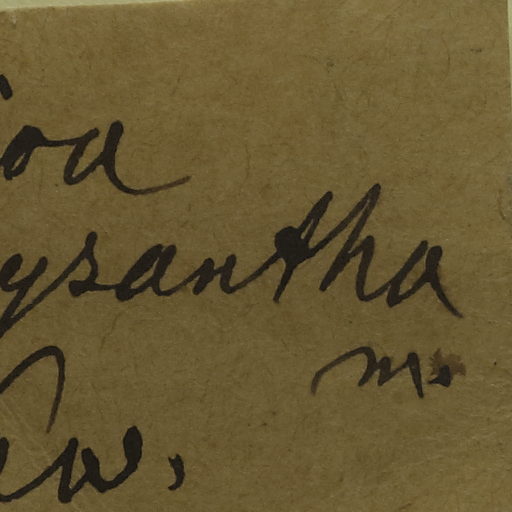 ioa
ysantha
m.
w.